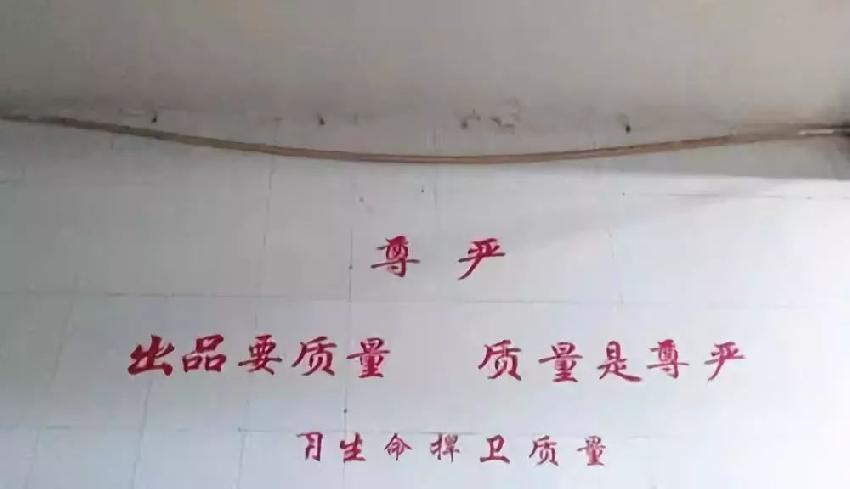 尊严
出品要质量 质量是尊严
生命捍卫质量